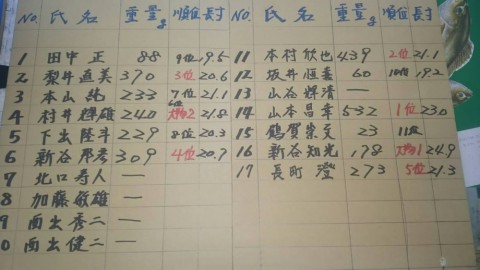 No. 氏名 重量g 順位 長寸
1 田中 正 88 9位 19.5
2 梨井 直美 370 3位 20.6
3 本山 純 233 7位 21.1
4 村井 輝雄 240 6位 大物2 21.8
5 下出 隆斗 229 8位 20.3
6 新谷 邦彦 309 4位 20.7
7 北口 寿人 —
8 加藤 敏雄 —
9 西出 秀二 —
0 西出 健二 —
No. 氏名 重量g 順位 長寸
11 本村 欣也 439 2位 21.1
12 坂井 恒 60 10位 19.2
13 山谷 輝清 —
14 山本 昌幸 532 1位 23.0
15 鶴賀 崇文 23 11位
16 新谷 知光 178 大物1 24.9
17 長町 澄 273 5位 21.3